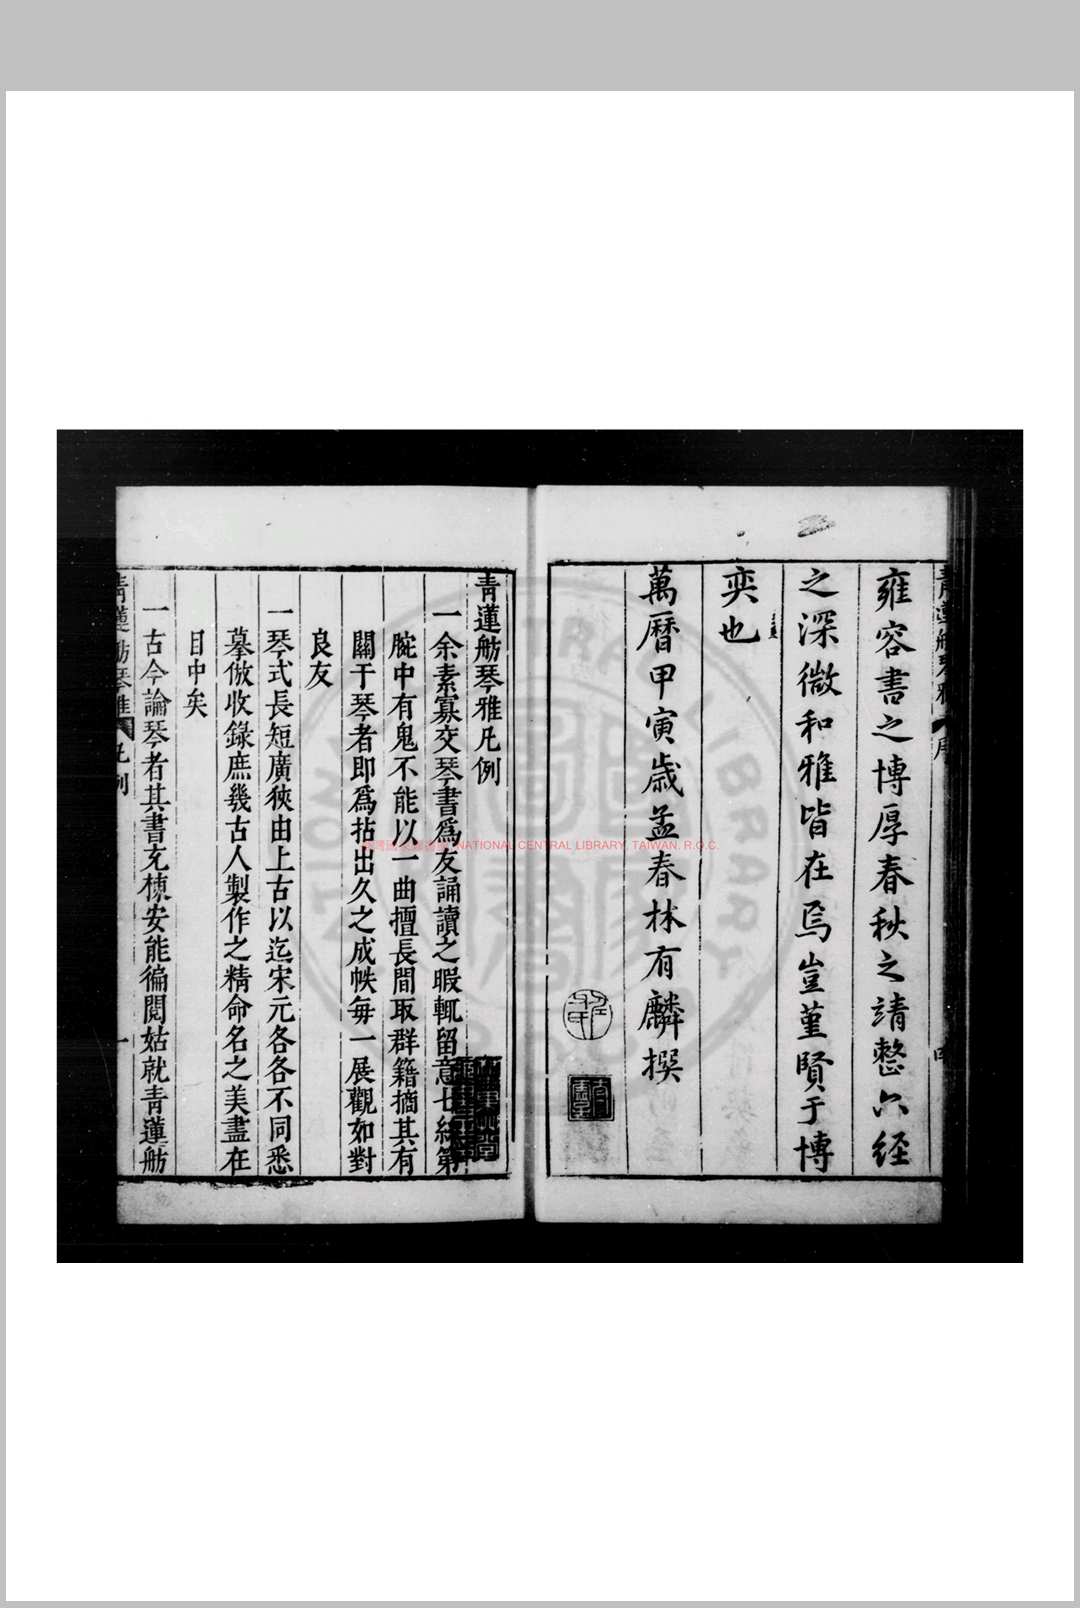 雍容書之博厚春秋之靖整六經
之深微和雅皆在焉豈堇賢于博
奕也
萬曆甲寅歲孟春林有麟撰
青蓮舫琴雅凡例
一余素寡交琴書爲友誦讀之暇輒留意七絃第
腕中有鬼不能以一曲擅長間取群籍摘其有
關于琴者即爲拈出久之成帙每一展觀如對
良友
一琴式長短廣狹由上古以迄宋元各各不同悉
摹倣收錄庶幾古人製作之精命名之美盡在
目中矣
一古今論琴者其書充棟安能徧閱姑就青蓮舫
青蓮舫琴雅 凡例 一
NATIONAL CENTRAL LIBRARY, TAIWAN, R.O.C.